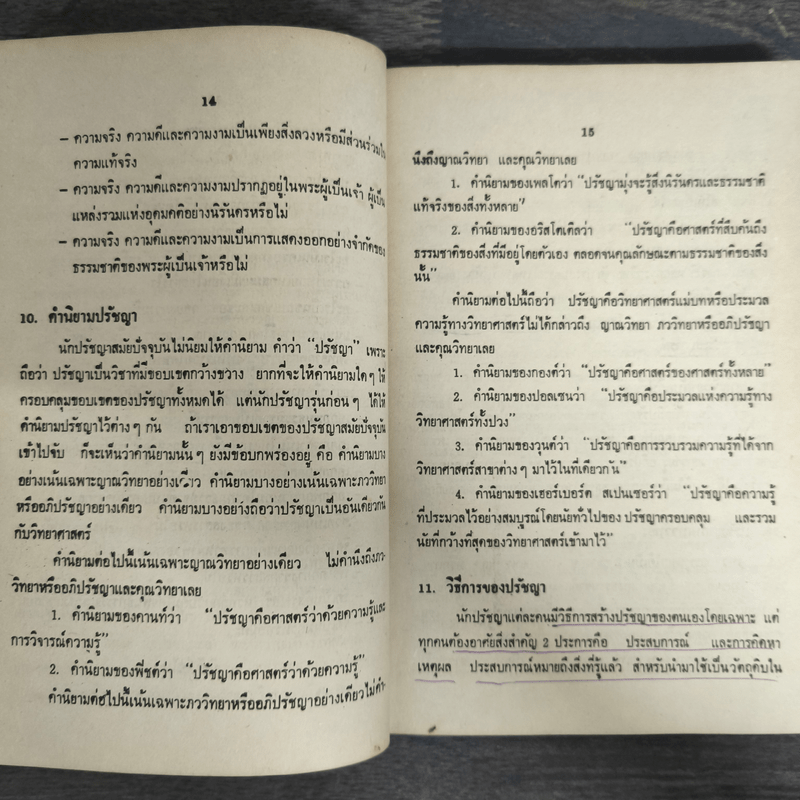 14
– ความจริง ความดีและความงามเป็นเพียงสิ่งลวงหรือมีส่วนร่วมใน
ความแท้จริง
– ความจริง ความดีและความงามปรากฏอยู่ในพระผู้เป็นเจ้า ผู้เป็น
แหล่งรวมแห่งอุดมคติอย่างนิรันดรหรือไม่
– ความจริง ความดีและความงามเป็นการแสดงออกอย่างจำกัดของ
ธรรมชาติของพระผู้เป็นเจ้าหรือไม่
10. คำนิยามปรัชญา
นักปรัชญาสมัยปัจจุบันไม่นิยมให้คำนิยาม คำว่า “ปรัชญา” เพราะ
ถือว่า ปรัชญาเป็นวิชาที่มีขอบเขตกว้างขวาง ยากที่จะให้คำนิยามใด ๆ ให้
ครอบคลุมขอบเขตของปรัชญาทั้งหมดได้ แต่นักปรัชญารุ่นก่อน ๆ ได้ให้
คำนิยามปรัชญาไว้ต่าง ๆ กัน ถ้าเราเอาขอบเขตของปรัชญาสมัยปัจจุบัน
เข้าไปจับ ก็จะเห็นว่าคำนิยามนั้น ๆ ยังมีข้อบกพร่องอยู่ คือ คำนิยามบาง
อย่างเน้นเฉพาะญาณวิทยาอย่างเดียว คำนิยามบางอย่างเน้นเฉพาะภววิทยา
หรืออภิปรัชญาอย่างเดียว คำนิยามบางอย่างถือว่าปรัชญาเป็นอันเดียวกัน
กับวิทยาศาสตร์
คำนิยามต่อไปนี้เน้นเฉพาะญาณวิทยาอย่างเดียว ไม่คำนึงถึงภว-
วิทยาหรืออภิปรัชญาและคุณวิทยาเลย
1. คำนิยามของคานท์ว่า “ปรัชญาคือศาสตร์ว่าด้วยความรู้และ
การวิจารณ์ความรู้”
2. คำนิยามของฟิชต์ว่า “ปรัชญาคือศาสตร์ว่าด้วยความรู้”
คำนิยามต่อไปนี้เน้นเฉพาะภววิทยาหรืออภิปรัชญาอย่างเดียวไม่คำ-
15
นึงถึงญาณวิทยา และคุณวิทยาเลย
1. คำนิยามของเพลโตว่า “ปรัชญามุ่งจะรู้สิ่งนิรันดรและธรรมชาติ
แท้จริงของสิ่งทั้งหลาย”
2. คำนิยามของอริสโตเติลว่า “ปรัชญาคือศาสตร์ที่สืบค้นถึง
ธรรมชาติของสิ่งที่มีอยู่โดยตัวเอง ตลอดจนคุณลักษณะตามธรรมชาติของสิ่ง
นั้น”
คำนิยามต่อไปนี้ถือว่า ปรัชญาคือวิทยาศาสตร์แม่บทหรือประมวล
ความรู้ทางวิทยาศาสตร์ไม่ได้กล่าวถึง ญาณวิทยา ภววิทยาหรืออภิปรัชญา
และคุณวิทยาเลย
1. คำนิยามของกองต์ว่า “ปรัชญาคือศาสตร์ของศาสตร์ทั้งหลาย”
2. คำนิยามของปอลเซนว่า “ปรัชญาคือประมวลแห่งความรู้ทาง
วิทยาศาสตร์ทั้งปวง”
3. คำนิยามของวุนต์ว่า “ปรัชญาคือการรวบรวมความรู้ที่ได้จาก
วิทยาศาสตร์สาขาต่าง ๆ มาไว้ในที่เดียวกัน”
4. คำนิยามของเฮอร์เบอร์ต สเปนเซอร์ว่า “ปรัชญาคือความรู้
ที่ประมวลไว้อย่างสมบูรณ์โดยนัยทั่วไปของ ปรัชญาครอบคลุม และรวม
นัยที่กว้างที่สุดของวิทยาศาสตร์เข้ามาไว้”
11. วิธีการของปรัชญา
นักปรัชญาแต่ละคนมีวิธีการสร้างปรัชญาของตนเองโดยเฉพาะ แต่
ทุกคนต้องอาศัยสิ่งสำคัญ 2 ประการคือ ประสบการณ์ และการคิดหา
เหตุผล ประสบการณ์หมายถึงสิ่งที่รู้แล้ว สำหรับนำมาใช้เป็นวัตถุดิบใน